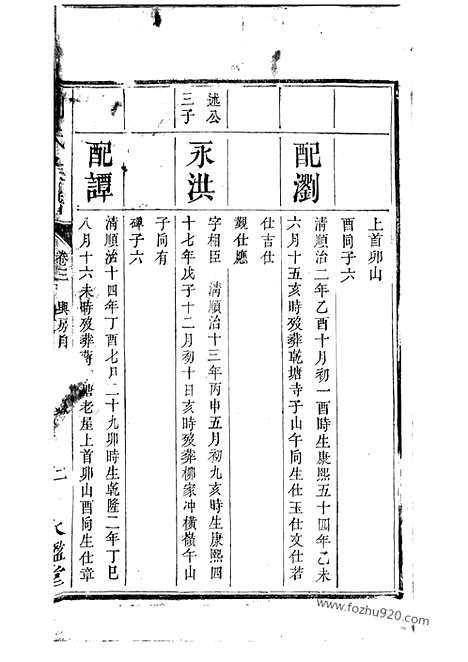 上首卯山
酉同子六
配瀏
清順治二年乙酉十月初一酉時生康熙五十四年乙未
六月十五亥時歿葬乾塘寺子山午同生仕玉仕文仕若
仕吉仕
觀仕應
述公
三子
永洪
字相臣 清順治十三年丙申五月初九亥時生康熙四
十七年戊子十二月初十日亥時歿葬柳家冲橫嶺午山
子同有
碑子六
配譚
清順治十四年丁酉七月二十九卯時生乾隆二年丁巳
八月十六未時歿葬蔣塘老屋上首卯山酉同生仕章
卷三
興房目
www.fozhu920.com